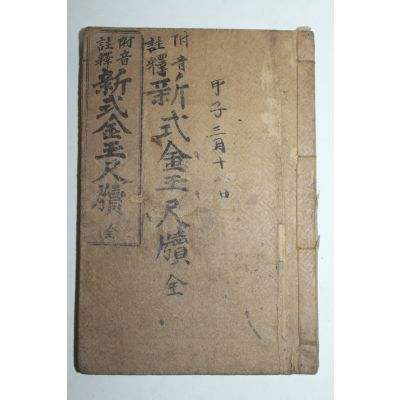 甲子三月十日
附音
註釋
新式金玉尺牘 全
附音
註釋
新式金玉尺牘 全